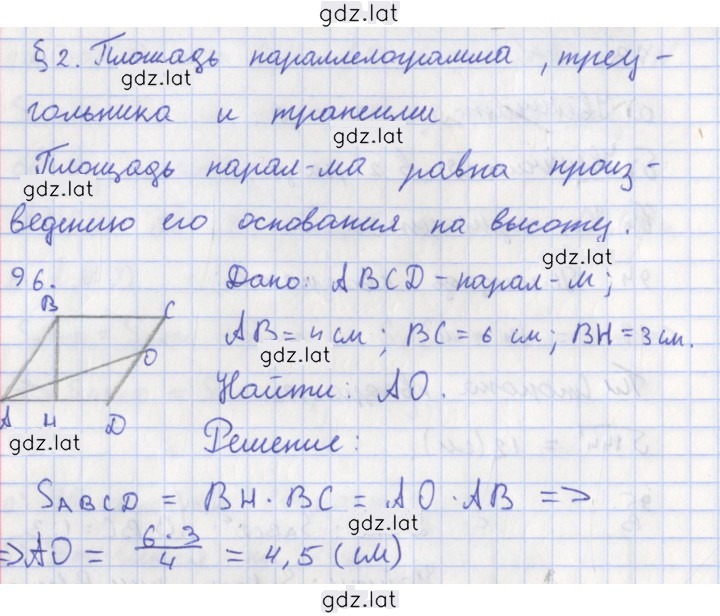 gdz.lat
§ 2. Площадь параллелограмма, треу-
gdz.lat
гольника и трапеции
gdz.lat
Площадь парал-ма равна произ-
gdz.lat
ведению его основания на высоту.
gdz.lat
96.
Дано: ABCD - парал-м;
B C
AB = 4 см; BC = 6 см; BH = 3 см.
gdz.lat
O
Найти: AO.
A H D
gdz.lat
Решение:
SABCD = BH · BC = AO · AB =>
gdz.lat
=> AO = 6·3/4 = 4,5 (см)
gdz.lat